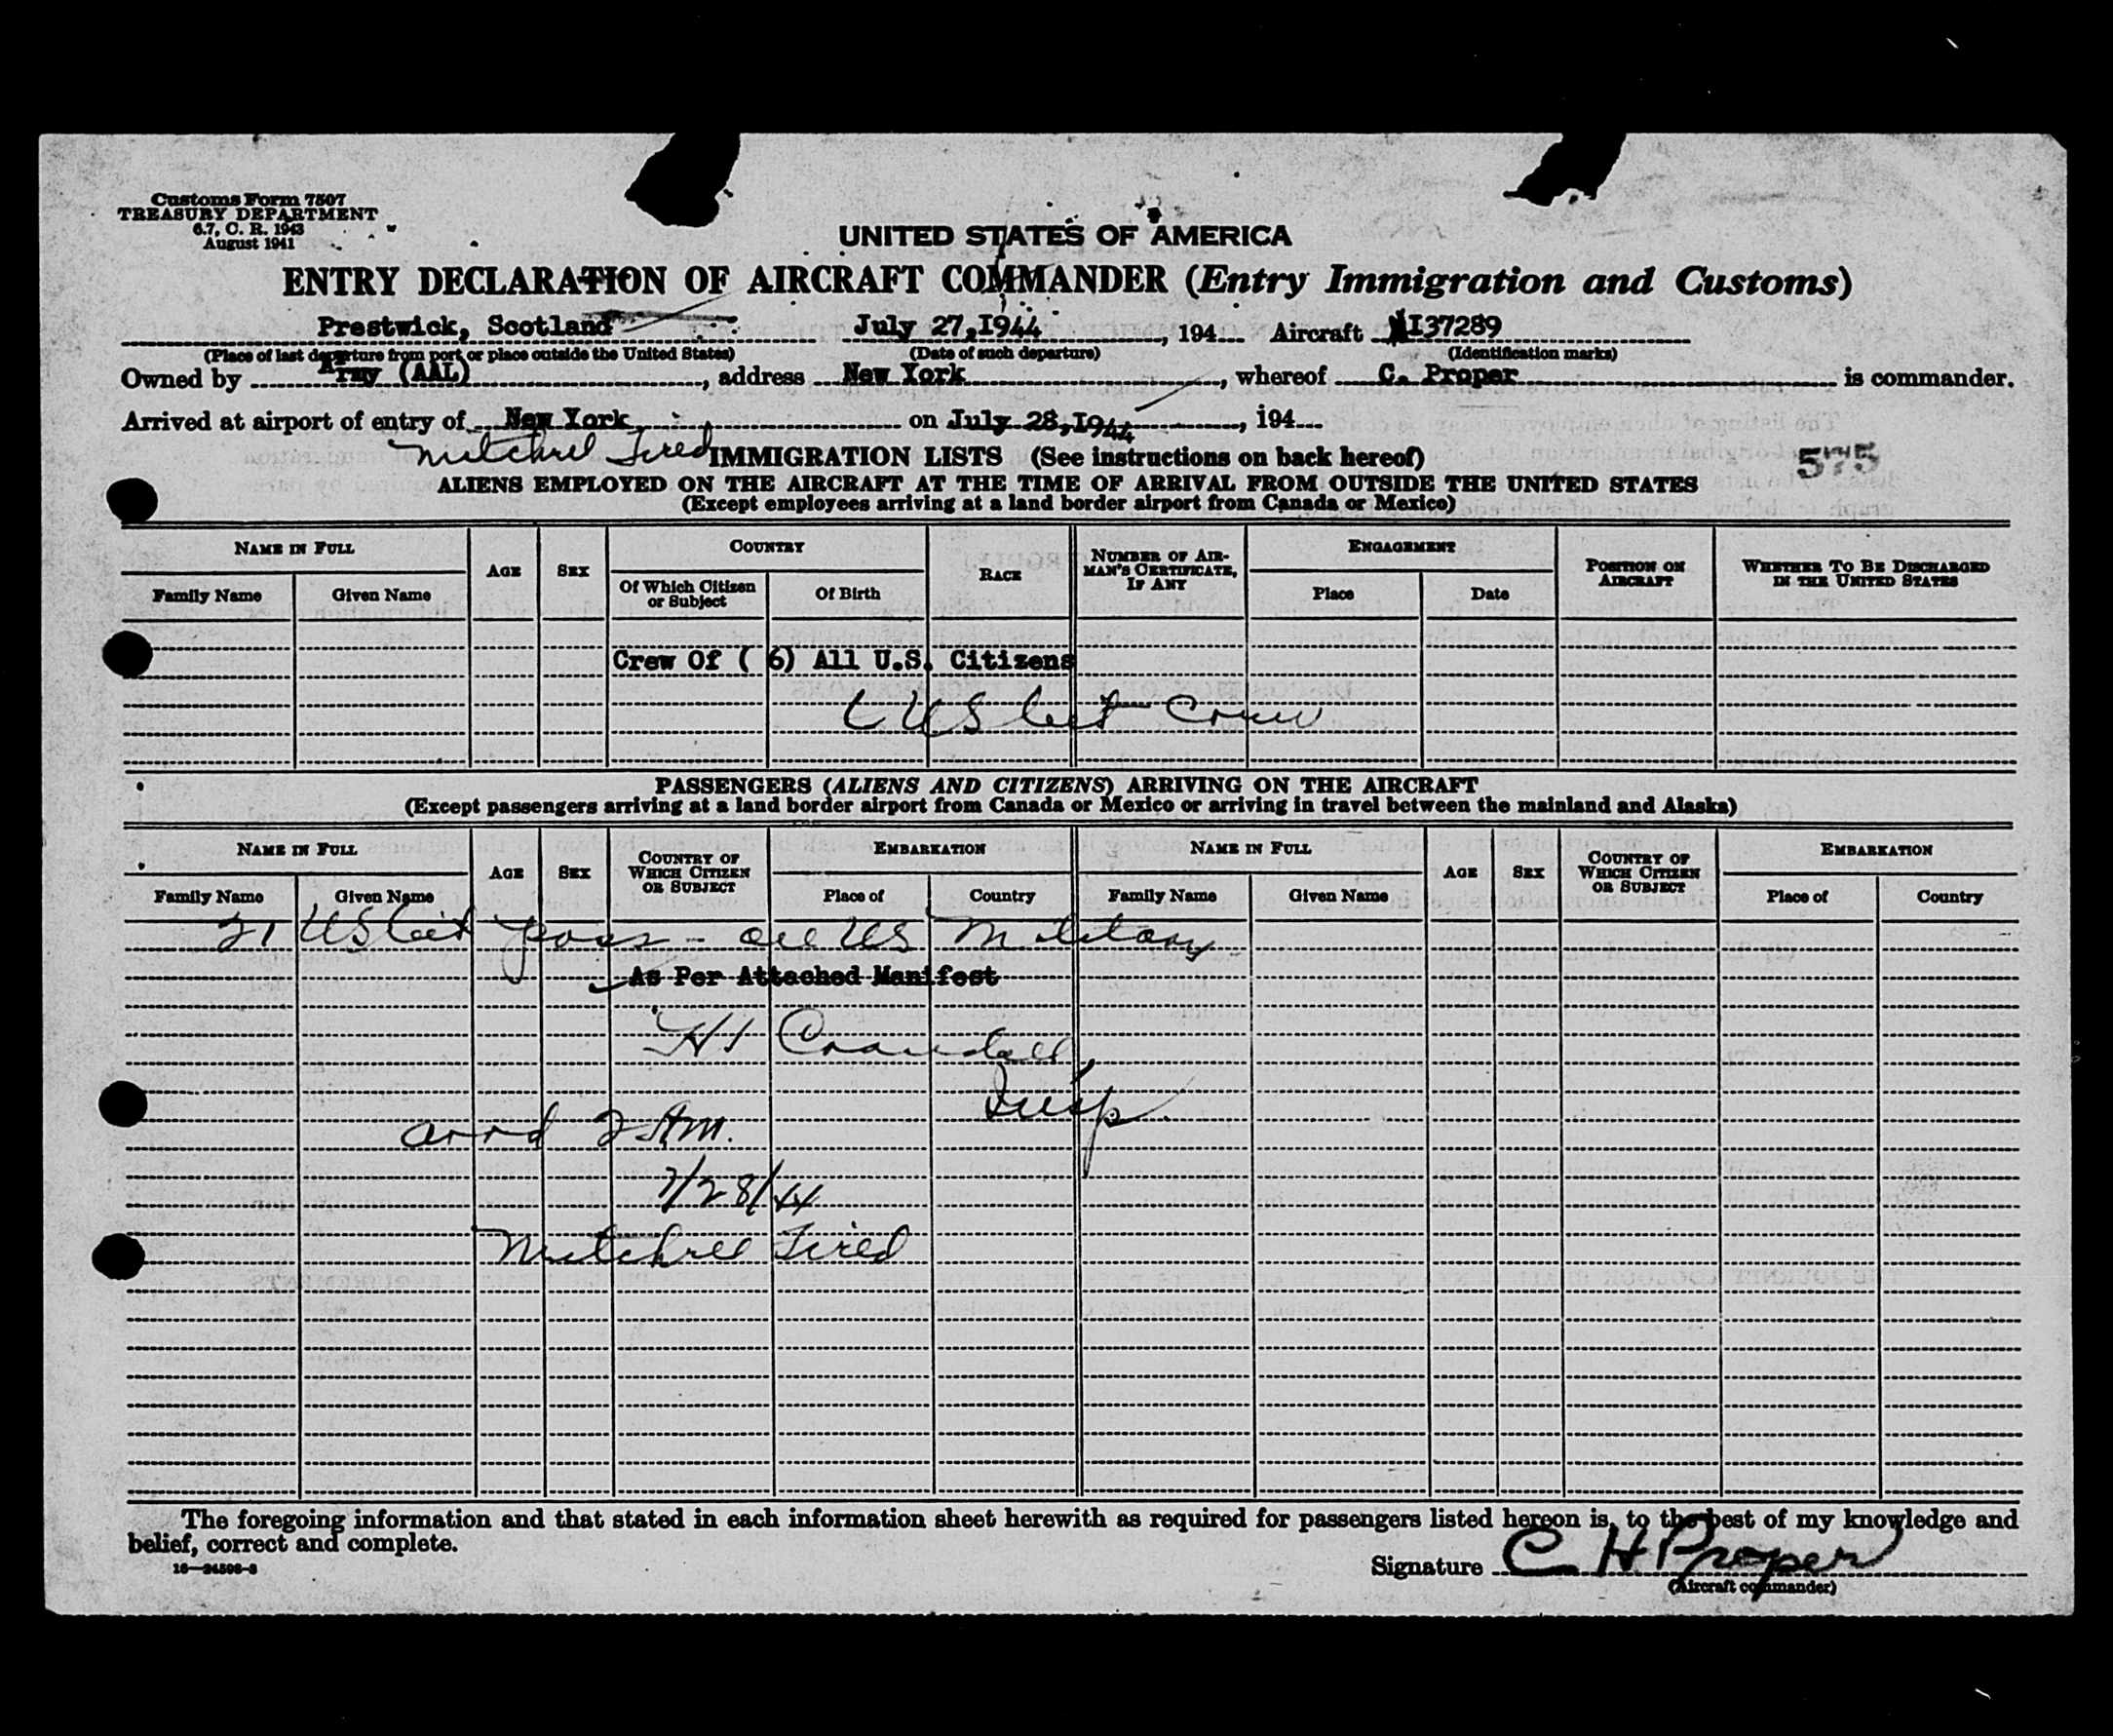 Customs Form 7507
TREASURY DEPARTMENT
6.7, C. R. 1943
August 1941
UNITED STATES OF AMERICA
ENTRY DECLARATION OF AIRCRAFT COMMANDER (Entry Immigration and Customs)
Prestwick, Scotland July 27,1944, 194 Aircraft 137289
(Place of last departure from port or place outside the United States) (Date of such departure) (Identification marks)
Owned by Army (AAL), address New York, whereof C. Proper is commander.
Arrived at airport of entry of New York on July 28,1944, 194
Mitchel Field IMMIGRATION LISTS (See instructions on back hereof) 575
ALIENS EMPLOYED ON THE AIRCRAFT AT THE TIME OF ARRIVAL FROM OUTSIDE THE UNITED STATES
(Except employees arriving at a land border airport from Canada or Mexico)
NAME IN FULL AGE SEX COUNTRY RACE NUMBER OF AIRMAN'S CERTIFICATE, IF ANY ENGAGEMENT POSITION ON AIRCRAFT WHETHER TO BE DISCHARGED IN THE UNITED STATES
Family Name Given Name Of Which Citizen or Subject Of Birth Place Date
Crew Of ( 6) All U.S. Citizens
6 US Cit Crew
PASSENGERS (ALIENS AND CITIZENS) ARRIVING ON THE AIRCRAFT
(Except passengers arriving at a land border airport from Canada or Mexico or arriving in travel between the mainland and Alaska)
NAME IN FULL AGE SEX COUNTRY OF WHICH CITIZEN OR SUBJECT EMBARKATION NAME IN FULL AGE SEX COUNTRY OF WHICH CITIZEN OR SUBJECT EMBARKATION
Family Name Given Name Place of Country Family Name Given Name Place of Country
21 US Cit pass - all US Military
As Per Attached Manifest
Crandall
Insp.
arrd 2 AM.
7/28/44
Mitchel Field
The foregoing information and that stated in each information sheet herewith as required for passengers listed hereon is, to the best of my knowledge and
belief, correct and complete.
16—24596-3
Signature C H Proper
(Aircraft commander)